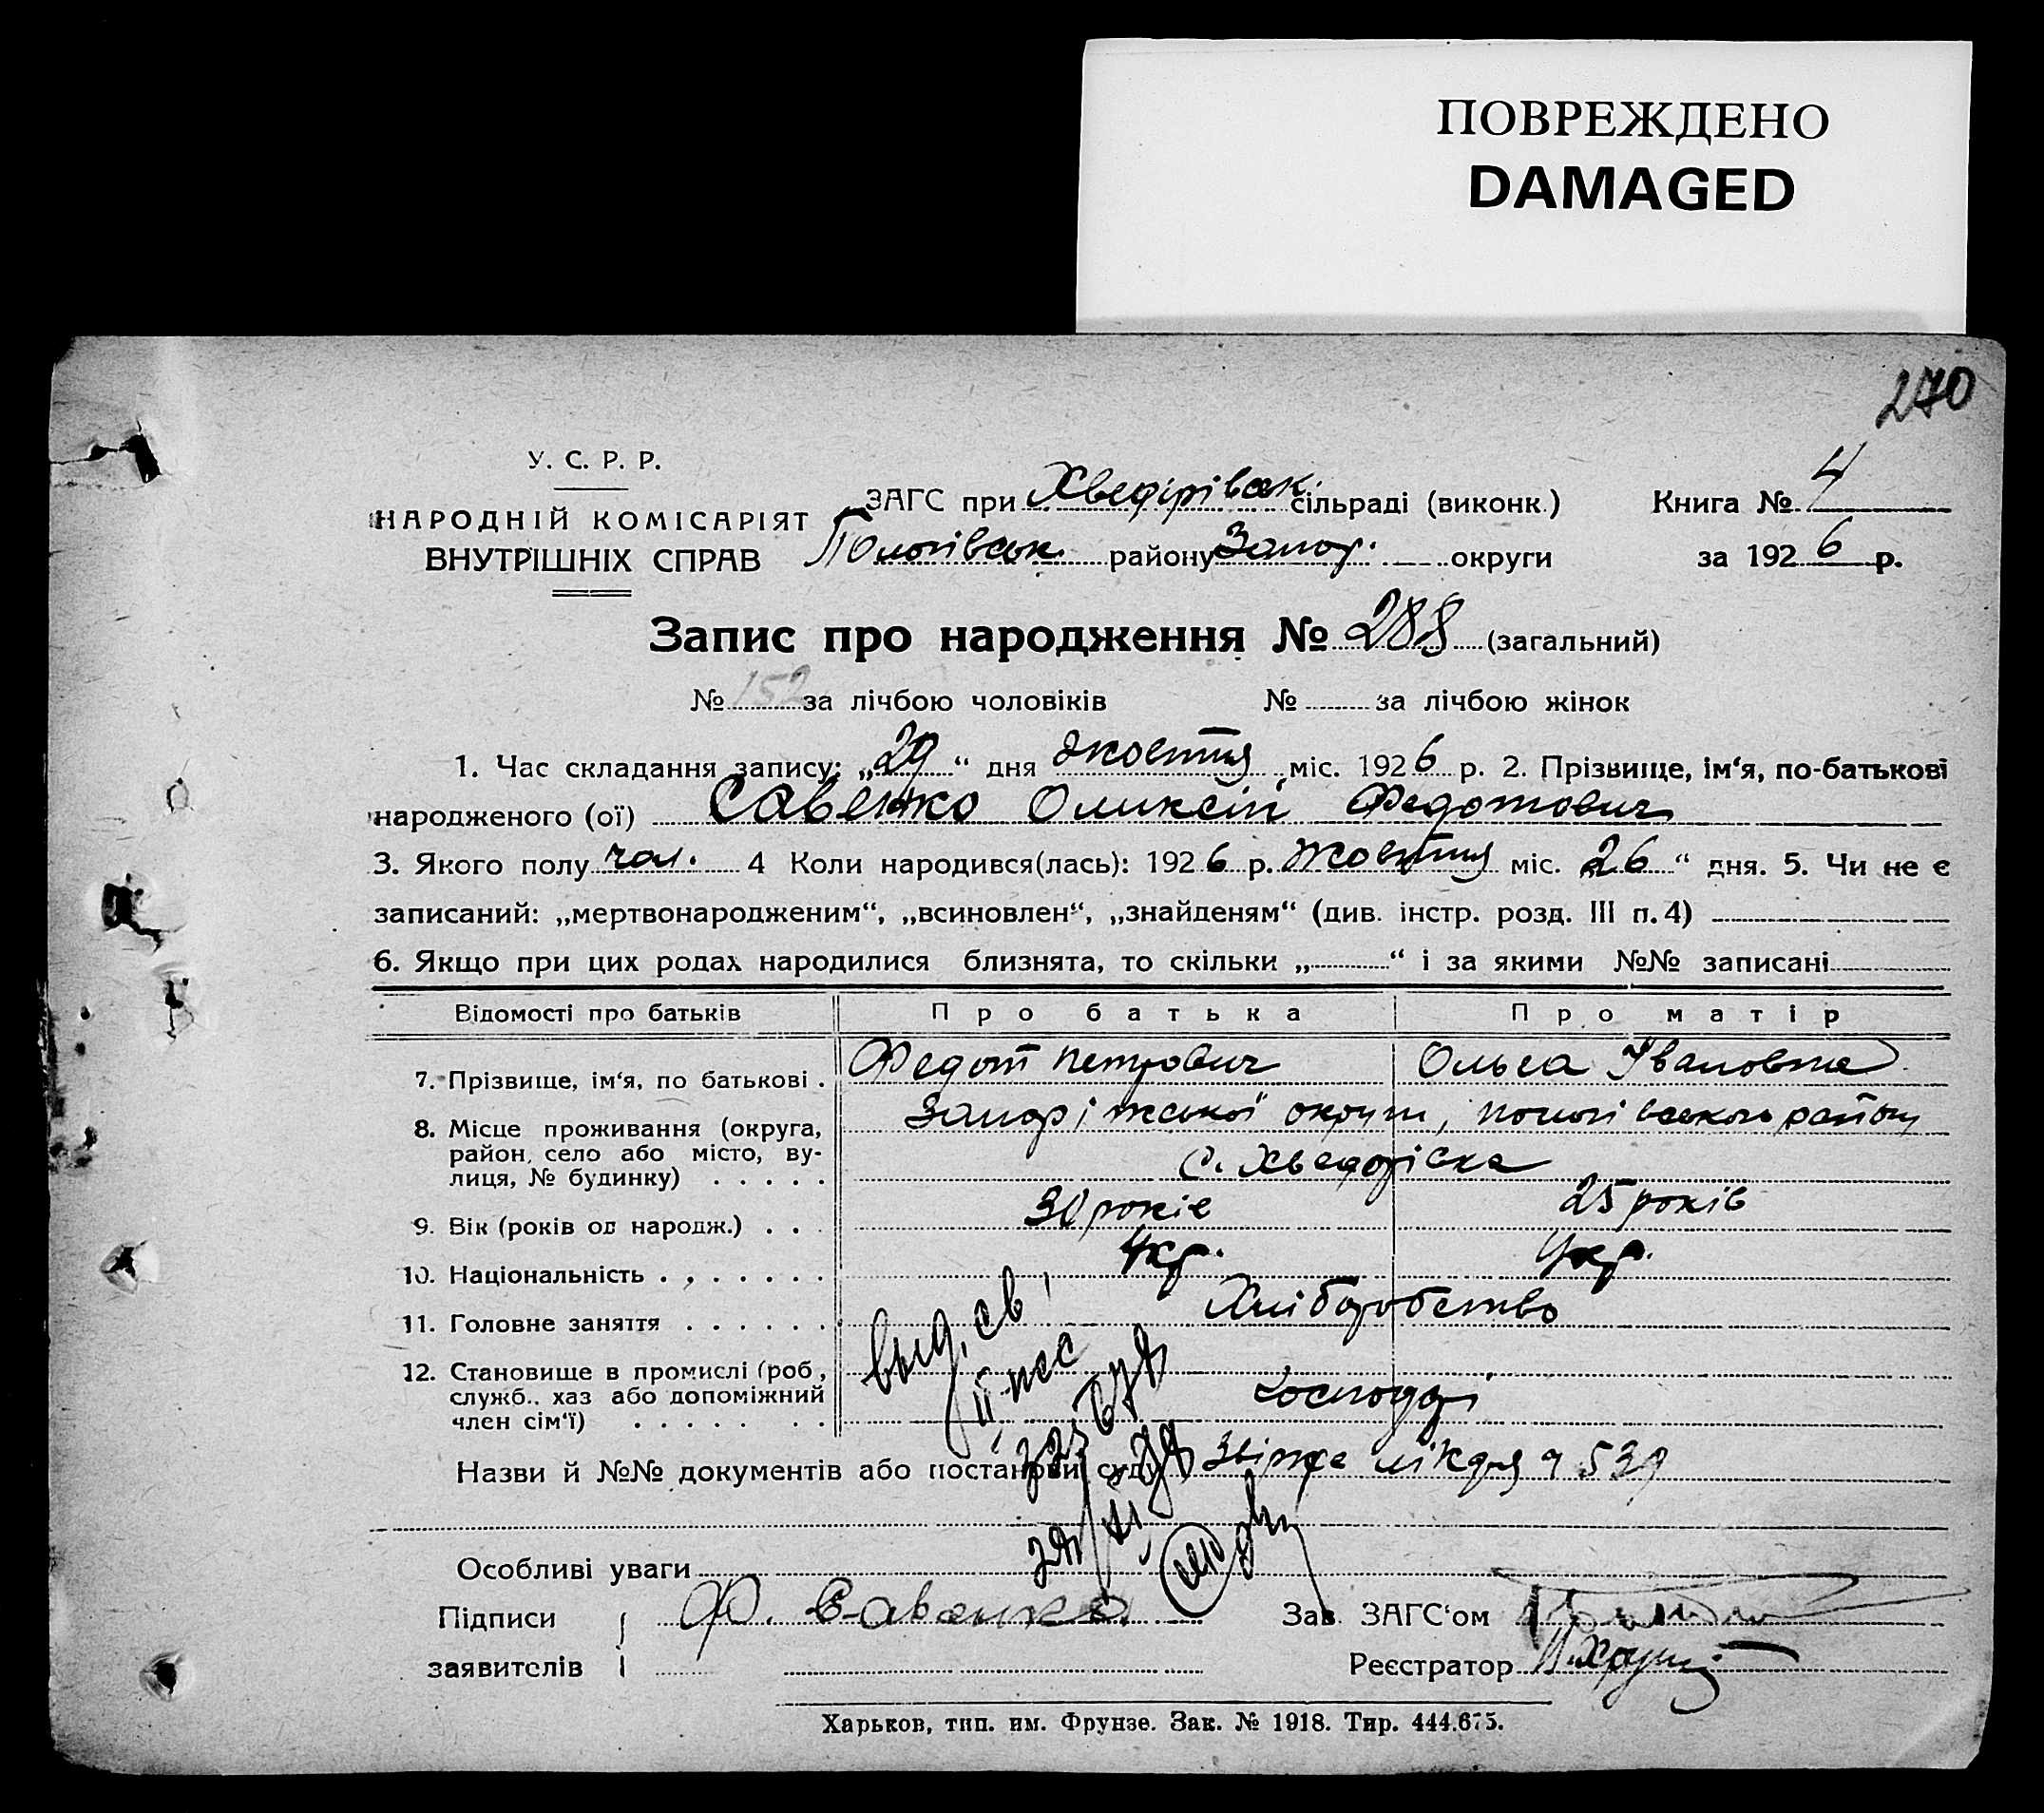 ПОВРЕЖДЕНО
DAMAGED
270
У. С. Р. Р.
НАРОДНІЙ КОМІСАРІЯТ
ВНУТРІШНІХ СПРАВ
ЗАГС при Хведірівськ. сільраді (виконк.) Книга № 4
Пологівськ. району Запор. округи за 1926 р.
Запис про народження № 288 (загальний)
№ 152 за лічбою чоловіків № за лічбою жінок
1. Час складання запису: „29“ дня жовтня міс. 1926 р. 2. Прізвище, ім‘я, по-батькові
народженого (ої) Савенко Оликсій Федотович
3. Якого полу чол. 4 Коли народився(лась): 1926 р. жовтня міс. 26“ дня. 5. Чи не є
записаний: „мертвонародженим“, „всиновлен“, „знайденям“ (див. інстр. розд. III п. 4)
6. Якщо при цих родах народилися близнята, то скільки „ “ і за якими №№ записані
Відомості про батьків Про батька Про матір
7. Прізвище, ім‘я, по батькові . Федот Петрович Ольга Івановна
8. Місце проживання (округа, район, село або місто, вулиця, № будинку) . . . . .
Запоріжської округи, пологівського району
с. Хведорівка
9. Вік (років од народж.) . . . 30 років 25 років
10. Національність . . . . . . . Укр. Укр.
11. Головне заняття . . . . . . Хліборобство
12. Становище в промислі (роб., служб., хаз або допоміжний член сім‘ї) . . . . . . .
Господар
выд. св
Назви й №№ документів або постанови суду 539
Особливі уваги
Підписи заявителів Ф. Савенко
Зав. ЗАГС‘ом
Реєстратор
Харьков, тип. им. Фрунзе. Зак. № 1918. Тир. 444.675.